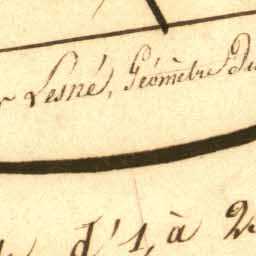 r Lesné, Géomètre Du
d'1, à 2